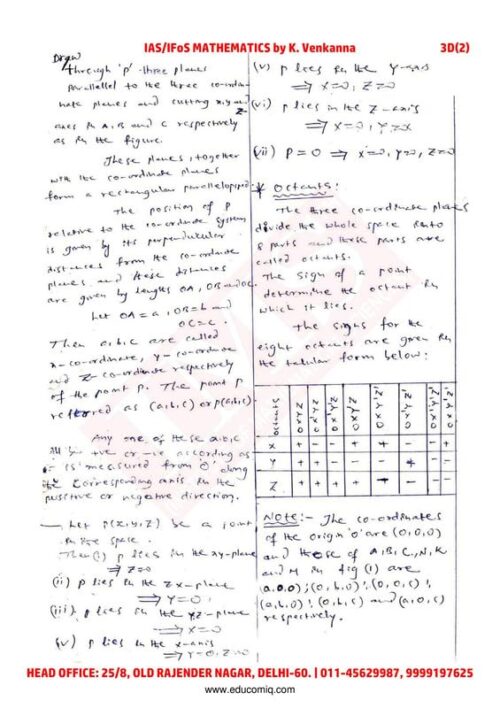 IAS/IFoS MATHEMATICS by K. Venkanna 3D(2)
Draw
through 'p' three planes
parallel to the three co-ordi-
nate planes and cutting x,y and
z-
axes in A, B and C respectively
as in the figure.
These planes, together
with the co-ordinate planes
form a rectangular parallelopiped
The position of P
relative to the co-ordinate system
is given by its perpendicular
distances from the co-ordinate
planes and these distances
are given by lengths OA, OB and OC.
Let OA = a, OB = b and
OC = c.
Then a, b, c are called
x-co-ordinate, y-co-ordinate
and z-co-ordinate respectively
of the point P. The point P
referred as (a,b,c) or P(a,b,c).
Any one of these a,b,c
will be +ve or -ve according as
it is measured from 'O' along
the corresponding axis in the
positive or negative direction.
— Let P(x,y,z) be a point
in the space.
Then (i) p lies in the xy-plane
⇒ z=0
(ii) p lies in the zx-plane
⇒ y=0,
(iii) p lies in the yz-plane
⇒ x=0
(iv) p lies in the x-axis
⇒ y=0, z=0
(v) p lies in the y-axis
⇒ x=0, z=0
(vi) p lies in the z-axis
⇒ x=0, y=0
(vii) P=0 ⇒ x=0, y=0, z=0
* Octants:
The three co-ordinate planes
divide the whole space into
8 parts and these parts are
called octants.
The sign of a point
determine the octant in
which it lies.
The signs for the
eight octants are given in
the tabular form below:
Octants OXYZ OX'YZ
X + -
Y + +
Z + +
Note:- The co-ordinates
of the origin 'O' are (0,0,0)
and those of A, B, C, N, K
and M in fig (1) are
(a,0,0); (0,b,0); (0,0,c);
(a,b,0); (0,b,c) and (a,0,c)
respectively.
HEAD OFFICE: 25/8, OLD RAJENDER NAGAR, DELHI-60. | 011-45629987, 9999197625
www.educomiq.com